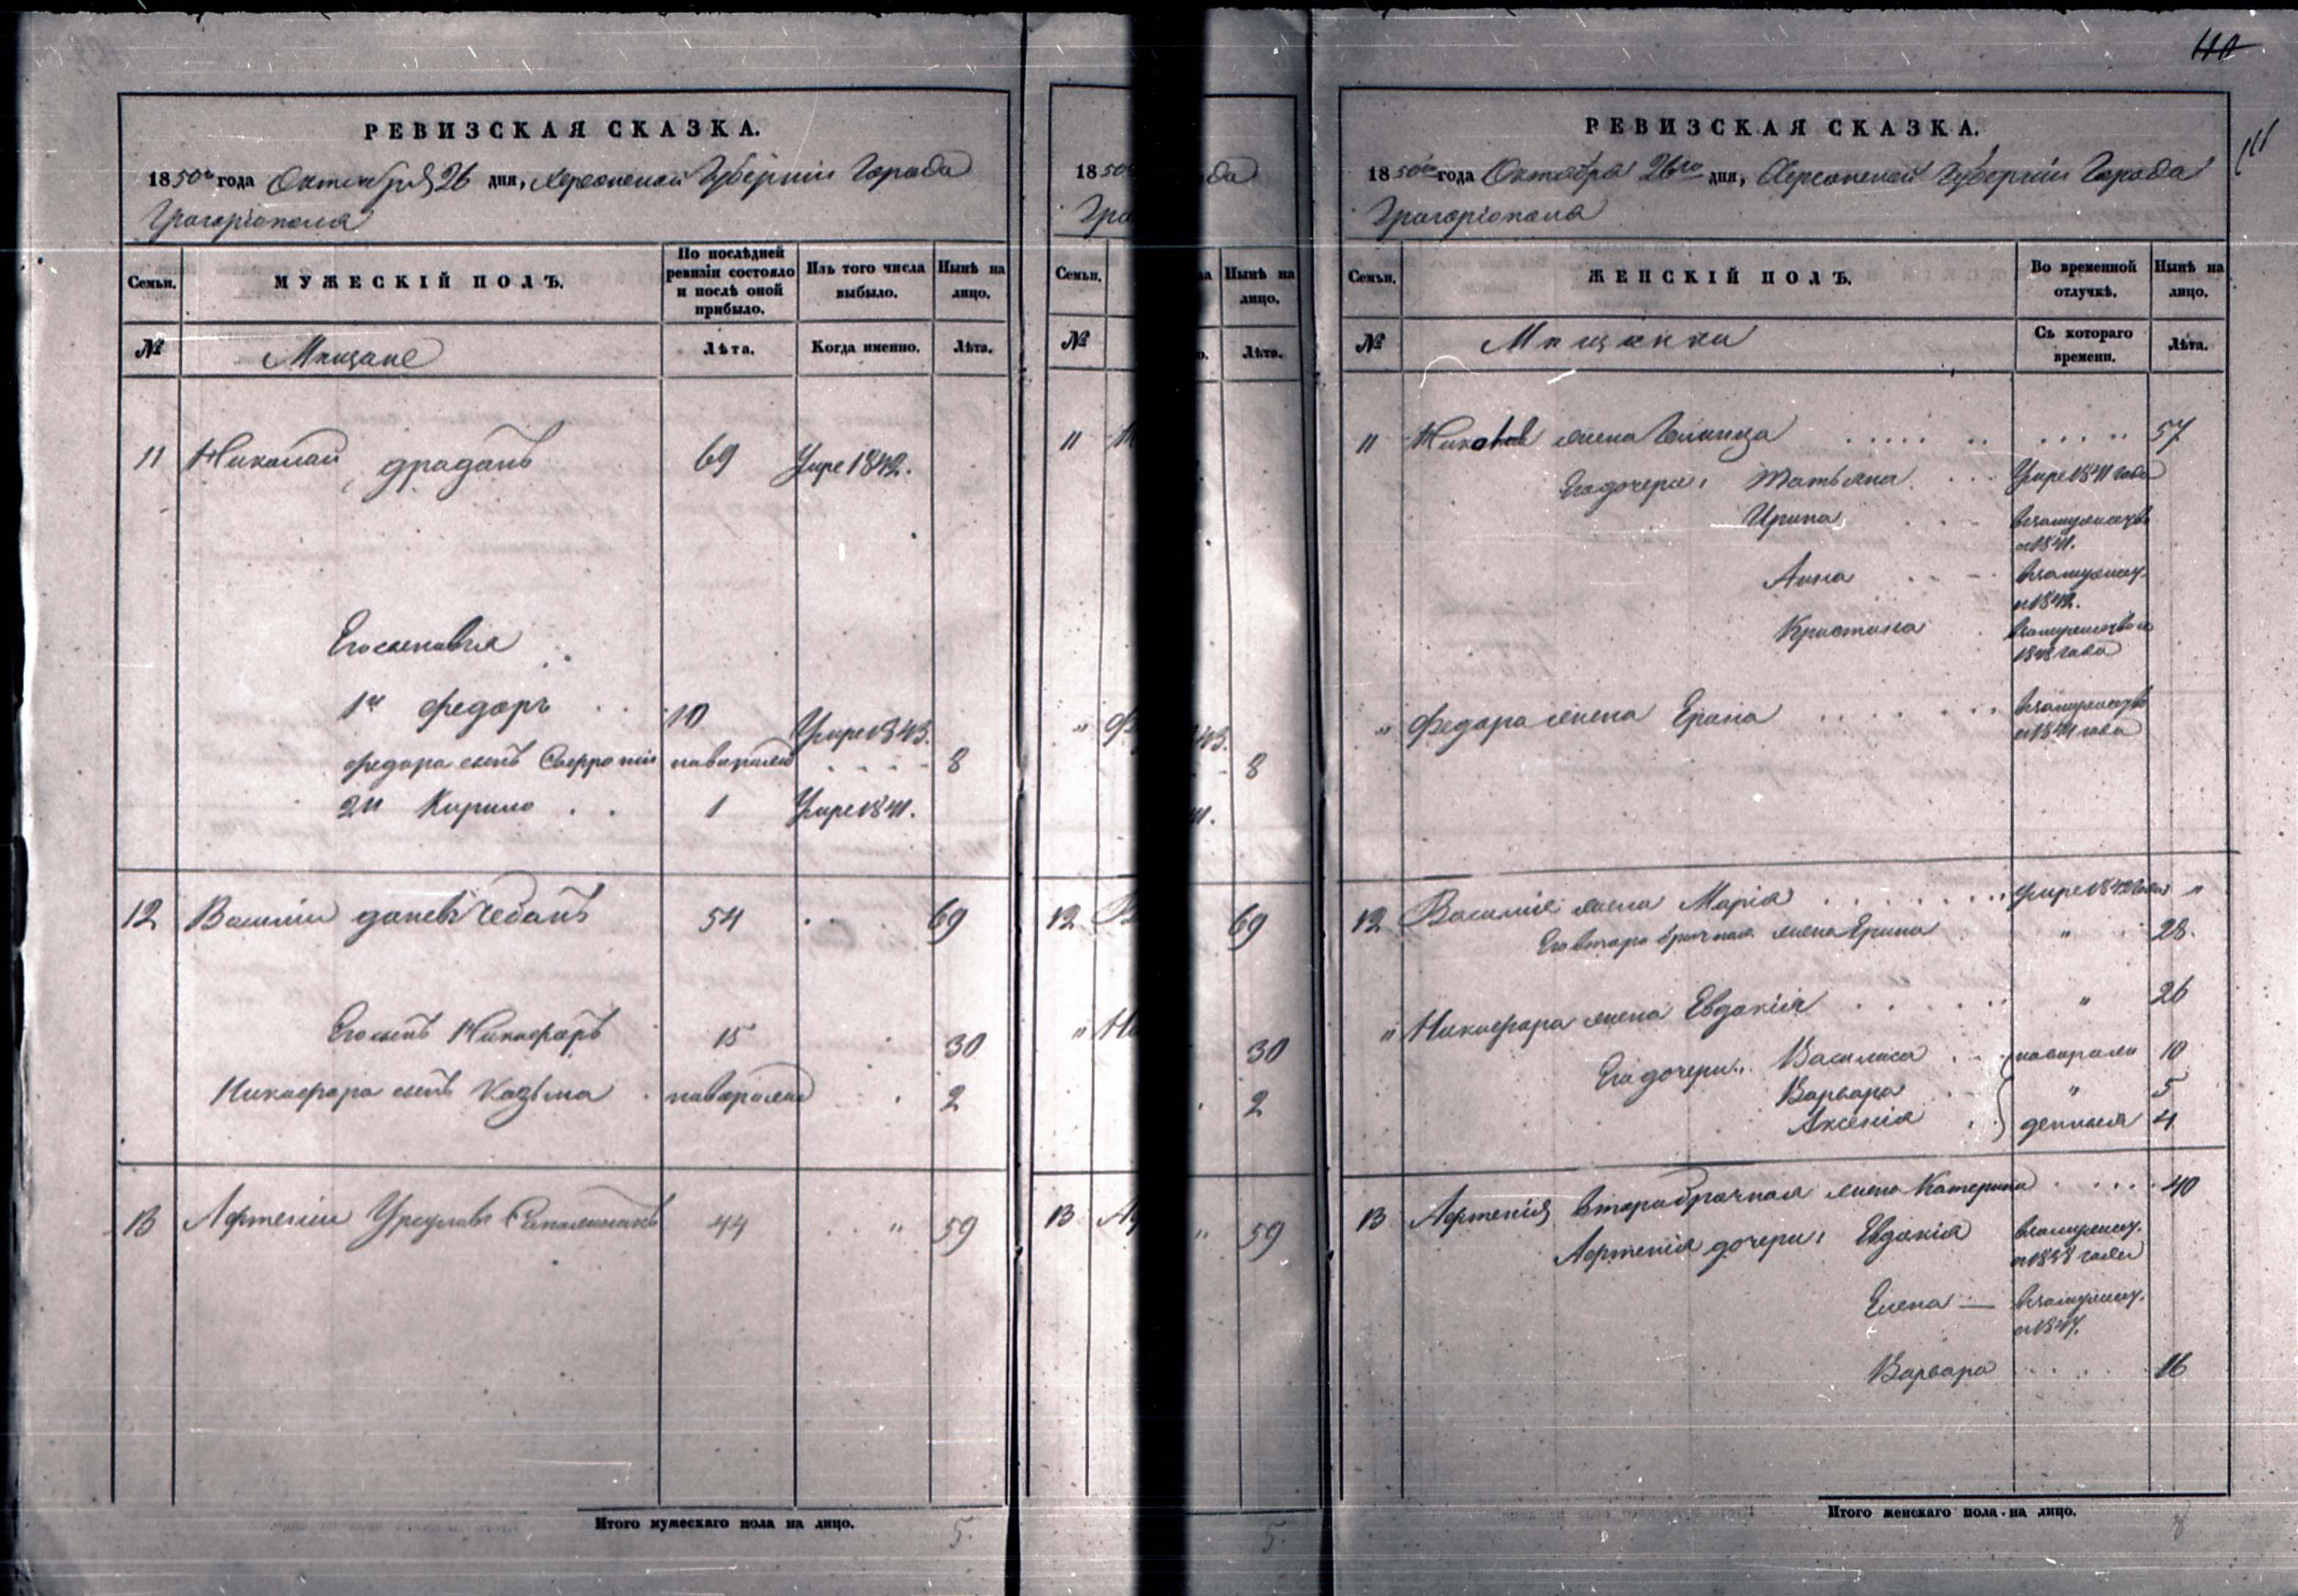 РЕВИЗСКАЯ СКАЗКА.
1850го года Октября 26 дня, Херсонской Губерніи Города
Григоріополя
Семьи.
МУЖЕСКІЙ ПОЛЪ.
По послѣдней ревизіи состояло и послѣ оной прибыло.
Изъ того числа выбыло.
Нынѣ на лицо.
№
Мѣщане
Лѣта.
Когда именно.
Лѣта.
11 Николай драганъ 69 Умре 1842.
Его сыновья
1й Федоръ 10 Умре 1843.
Федора сынъ новорожд 8
2й Кирило 1 Умре 1841.
12 Василій Чебанъ 54 69
Его сынъ Никифоръ 15 30
Никифора сынъ Козьма новорожд 2
13 Артемій 44 " 59
Итого мужескаго пола на лицо. 5
1850
да
Гри
Семьи.
Нынѣ на лицо.
№
Лѣта.
11
"
43.
8
41.
12 69
" Ни 30
2
13 " 59
5
110
111
РЕВИЗСКАЯ СКАЗКА.
1850го года Октября 26го дня, Херсонской Губерніи Города
Григоріополя
Семьи.
ЖЕНСКІЙ ПОЛЪ.
Во временной отлучкѣ.
Нынѣ на лицо.
№
Мѣщанки
Съ котораго времени.
Лѣта.
11 жена 57
Его дочери: Татьяна Умре 1841 года
Ирина взамужеств с 1841.
Анна взамужес. с 1842.
Кристина взамужество 1848 года
" Федора жена Ерина взамужеств с 1841 года
12 Василія жена Марія умре 1842 года "
Его второбрачная жена Ерина " 28.
" Никифора жена Евдокія " 26
Его дочери: Василиса новорожд 10
Варвара " 5
Аксенія 4
13 Артемія второбрачная жена Катерина 40
Артемія дочери: Евдокія взамужес. с 1838 года
Елена — взамужес. с 1847.
Варвара 16
Итого женскаго пола на лицо. 8